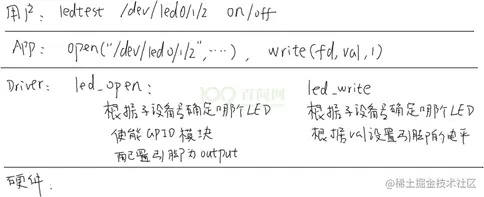 用户: ledtest /dev/led0/1/2 on/off
App: open("/dev/led0/1/2",····), write(fd,val,1)
Driver: led_open: led_write
根据子设备号确定哪个LED 根据子设备号确定哪个LED
使能GPIO模块 根据val设置引脚的电平
配置引脚为output
硬件:
@稀土掘金技术社区